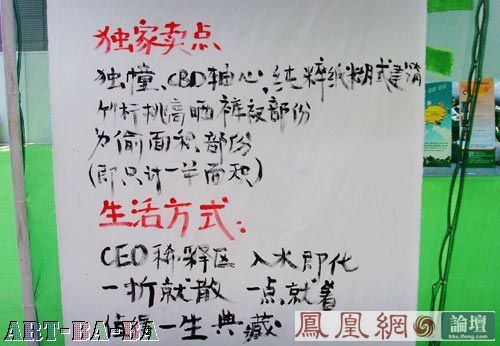 独家卖点
独幢、CBD轴心,纯粹纸糊式
竹杆挑高晒裤衩部份
为偷面积部份
(即只计一半面积)
生活方式:
CEO稀释区 入水即化
一折就散 一点就着
值得一生典藏
ART-BA-BA
鳳凰網 論壇
bbs.ifeng.com